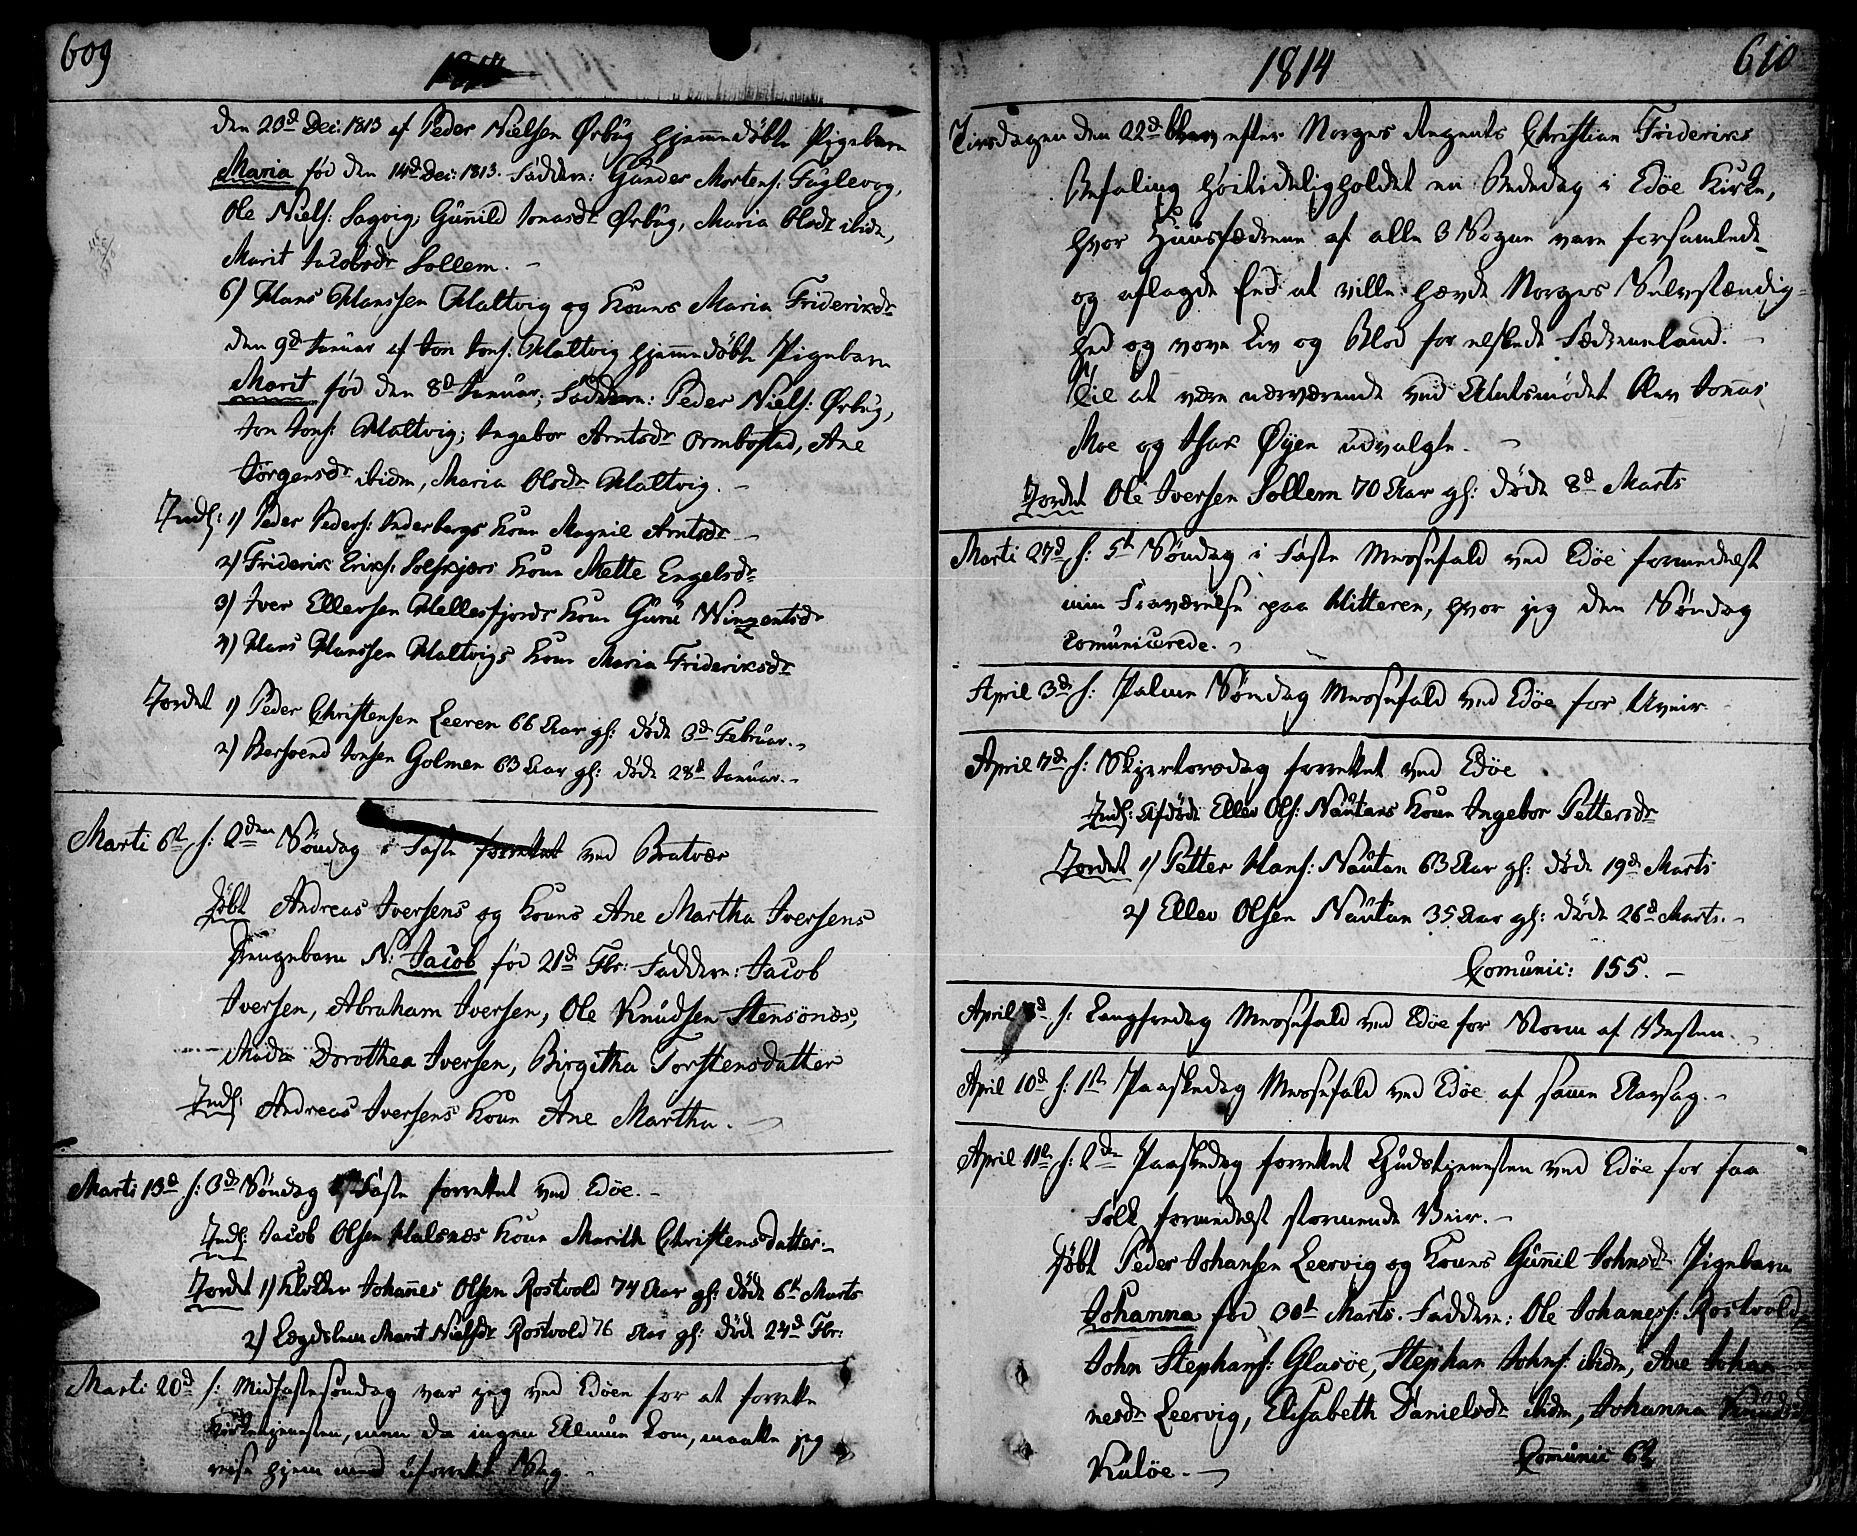 609
1814
den 23d Dec: 1813 af Peder Nielsen Ørbug hjemmedøbte Pigebarn
Maria fød den 14d Dec: 1813. Faddere: Gunder Mortens: Fuglevog,
Ole Niels: Sagvig; Gunnild Jonasdr Ørbug, Maria Olsdr ibide,
Marit Jacobsdr Sollem. -
6) Hans Hanssen Haltvig og Kones Maria Frideriksdr
den 9d Januar af Jon Jons: Haltvig hjemmedøbte Pigebarn
Marit fød den 8d Januar; Faddere: Peder Niels: Ørbug,
Jon Jons: Haltvig; Ingebor Arntsdr Ormbostad, Ane
Jørgensdr ibidem, Maria Olsdr Haltvig. -
Indl: 1) Peder Peders: Inderbergs Kone Magnil Arntsdr -
2) Friderik Eriks: Solskjærs Kone Mette Engelsdr
3) Iver Ellersen Hellesfjords Kone Guru Winzentsdr
4) Hans Hanssen Haltvigs Kone Maria Frideriksdr
Jordet 1) Peder Christensen Leeren 66 Aar gl: døde 3d Februar. -
2) Bersvend Jonsen Golmen 63 Aar gl: døde 28d Januar. -
Marti 6te s: 2den Søndag i Faste forrettet ved Bratvær
Døbt Andreas Iversens og Kones Ane Martha Iversens
Drengebarn N: Jacob fød 21d Fbr: Faddere: Jacob
Iversen, Abraham Iversen, Ole Knudsen Stensönæs,
Mad: Dorothea Iversen, Birgitha Torstensdatter
Indl: Andreas Iversens Kone Ane Martha. -
Marti 13d s: 3d Søndag i Faste forrettet ved Edöe. -
Indl: Jacob Olsen Halsnæs Kone Marith Christensdatter. -
Jordet 1) Johannes Olsen Rostvold 74 Aar gl: døde 6te Marts
2) Lægdslem Marit Nielsdr Rostvold 76 Aar gl: døde 24d Fbr:
Marti 20d s: Midfastesøndag var jeg ved Edöen for at forrette
Kirketjenesten, men da ingen Almue kom, maatte jeg
reise hjem med uforrettet Sag. -
1814
610
Tirsdagen den 22d blev efter Norges Regents Christian Frideriks
Befaling høitideligholdet en Bededag i Edöe Kirke,
hvor Huusfædrene af alle 3 Sogne vare forsamlede
og aflagde Eed at ville hævde Norges Selvstændig-
hed og vove Liv og Blod for elskede Fædreneland. -
Til at være nærværende ved Amtsmødet blev Jonas
Moe og Isak Øyen udvalgte. -
Jordet Ole Iversen Sollem 70 Aar gl: døde 8d Marts
Marti 27d s: 5te Søndag i Faste Messefald ved Edöe formedelst
min Fraværelse paa Hitteren, hvor jeg den Søndag
comunicerede. -
April 3d s: Palme Søndag Messefald ved Edöe for Uveir
April 7d s: Skjertorsdag forrettet ved Edöe
Indl: Afdøde Ellev Ols: Nautans Kone Ingebor Pettersdr
Jordet 1) Petter Hans: Nautan 63 Aar gl: døde 19d Marts
2) Ellev Olsen Nautan 35 Aar gl: døde 26d Marts. -
Comunic: 155. -
April 8d s: Langfredag Messefald ved Edöe for Storm af Vesten. -
April 10d s: 1ste Paaskedag Messefald ved Edöe af samme Aarsag. -
April 11te s: 2den Paaskedag forrettet Gudstjenesten ved Edöe for faa
Folk formedelst stormende Veir. -
Døbt Peder Johansen Leervig og Kones Gunnil Johnsdr Pigebarn
Johanna fød 30te Marts. Faddere: Ole Johaness: Rostvold,
John Stephans: Glasöe, Stephan Johns: ibidm, Ane Johan-
nesdr Leervig, Elisabeth Danielsdr ibidm, Johanna Knudsdr
Kulöe. -
Comunic 62